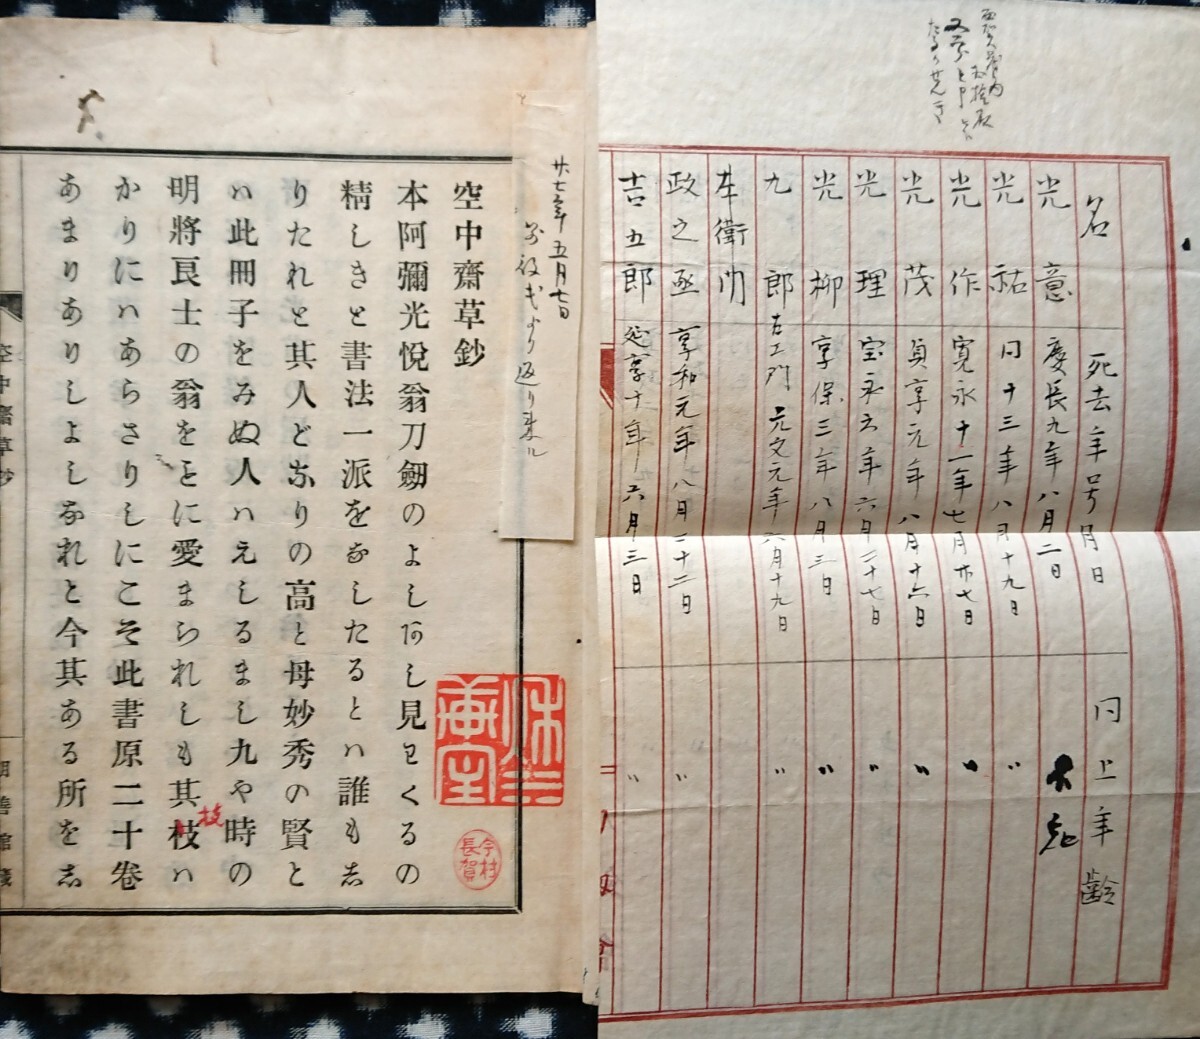 名 死去年号月日 同上年齢
光意 慶長九年八月二日 不知
光祐 同十三年八月十九日 〃
光作 寛永十一年七月廿七日 〃
光茂 貞享元年八月十六日 〃
光理 宝永六年六月二十七日 〃
光柳 享保三年八月三日 〃
九郎左エ門 元文元年六月十九日 〃
本衛門
政之丞 享和元年八月二十二日 〃
吉五郎 延享十年六月三日 〃
廿七年五月七日
より返り来ル
空中齋草鈔
本阿彌光悅翁刀劒のよし阿し見わくるの
精しきと書法一派をなしたるとハ誰も志
りたれと其人となりの高と母妙秀の賢と
ハ此冊子をみぬ人ハえしるまし九や時の
明將良士の翁をことに愛まられしも其枝ハ
技
かりにハあらさりしにこそ此書原二十卷
あまりありしよしなれと今其ある所を志
空中齋草鈔
今村長賀